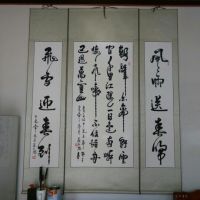 風雨送春歸
朝辞白帝彩雲
间千里江陵一日還两岸
猿声啼不住轻舟
已過萬重山
飛雪迎春到